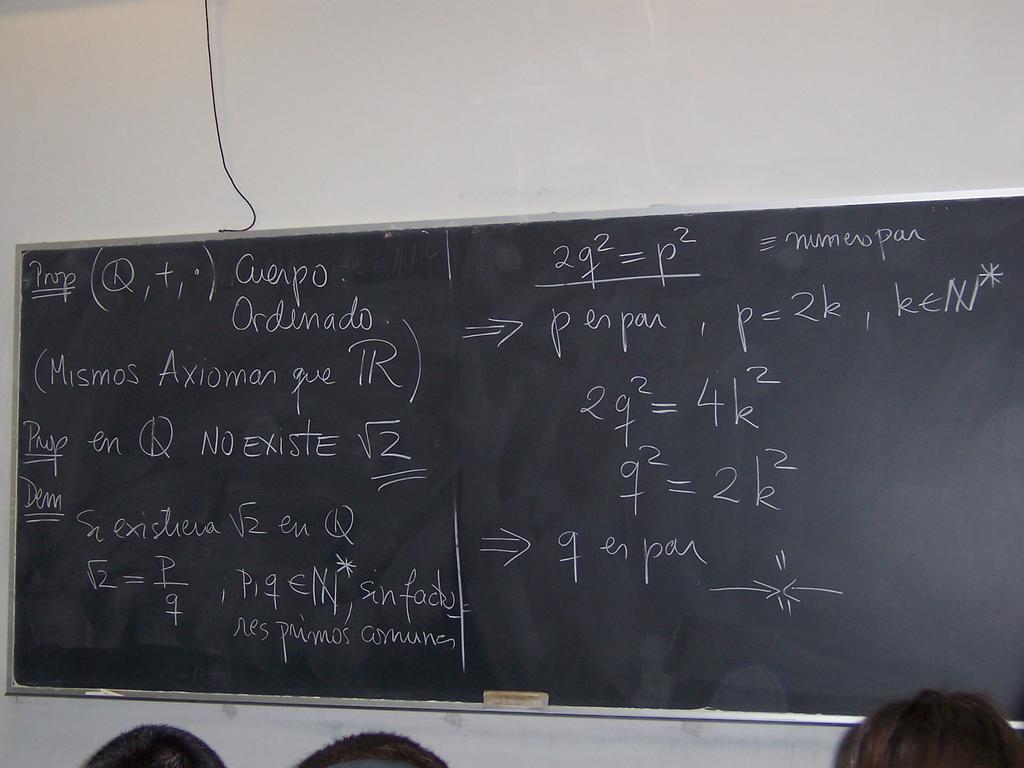 Prop (ℚ, +, ·) Cuerpo
Ordenado.
(Mismos Axiomas que ℝ)
Prop en ℚ NO EXISTE √2
Dem
Si existiera √2 en ℚ
√2 = p/q , p,q ∈ ℕ*, sin facto-
res primos comunes
2q² = p² ≡ numero par
⟹ p es par , p = 2k , k ∈ ℕ*
2q² = 4k²
q² = 2k²
⟹ q es par